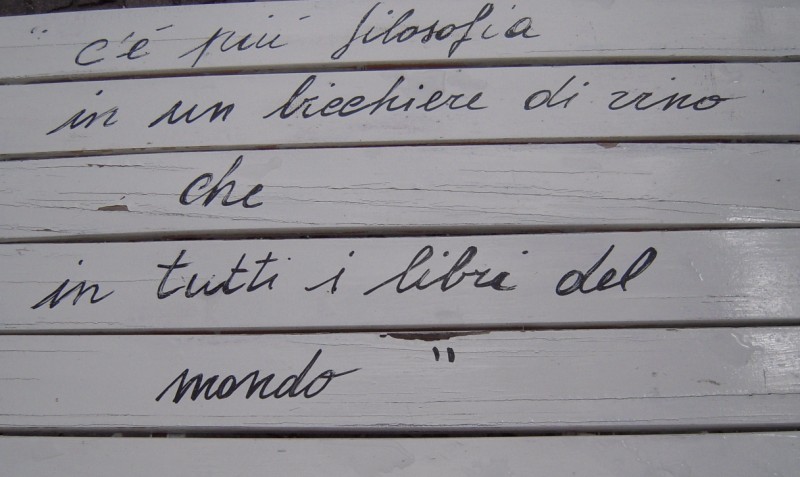 " c'é più filosofia
in un bicchiere di vino
che
in tutti i libri del
mondo "